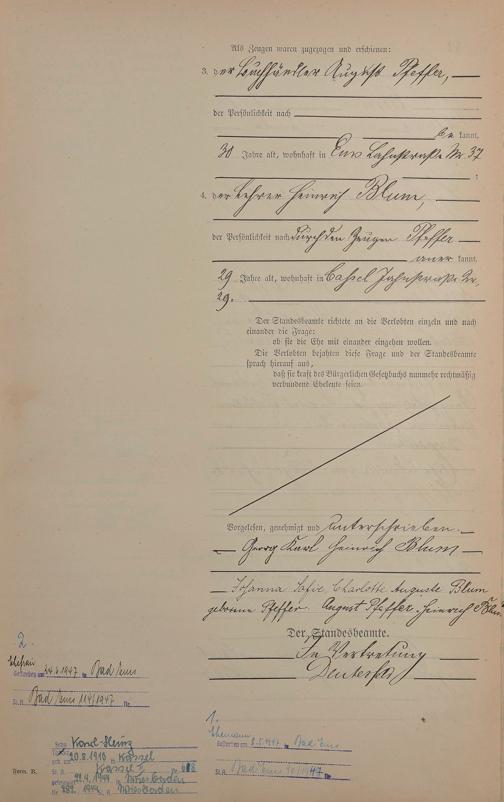 Als Zeugen waren zugezogen und erschienen:
3. der Buchhändler August Pfeffer,
der Persönlichkeit nach
be kannt,
30 Jahre alt, wohnhaft in Ems Lahnstraße Nr. 37
;
4. der Lehrer Heinrich Blum,
der Persönlichkeit nach durch den Zeugen Pfeffer
aner kannt,
29 Jahre alt, wohnhaft in Cassel Jahnstraße Nr.
29.
Der Standesbeamte richtete an die Verlobten einzeln und nach
einander die Frage:
ob sie die Ehe mit einander eingehen wollen.
Die Verlobten bejahten diese Frage und der Standesbeamte
sprach hierauf aus,
daß sie kraft des Bürgerlichen Gesetzbuchs nunmehr rechtmäßig
verbundene Eheleute seien.
Vorgelesen, genehmigt und unterschrieben.
Georg Karl Heinrich Blum
Johanna Sofie Charlotte Auguste Blum
geborene Pfeffer. August Pfeffer. Heinrich Blum
Der Standesbeamte.
In Vertretung
2.
Ehefrau
Gestorben am 24.6.1947 in Bad Ems
St.A. Bad Ems 114/1947 Nr.
1.
Ehemann
Gestorben am 8.5.1947 in Bad Ems
St.A. Bad Ems
Sohn Karl-Heinz
geb. am 20.8.1910 in Kassel
St.A. Kassel
1944 Wiesbaden
Nr. 1944 Wiesbaden
Form. B.